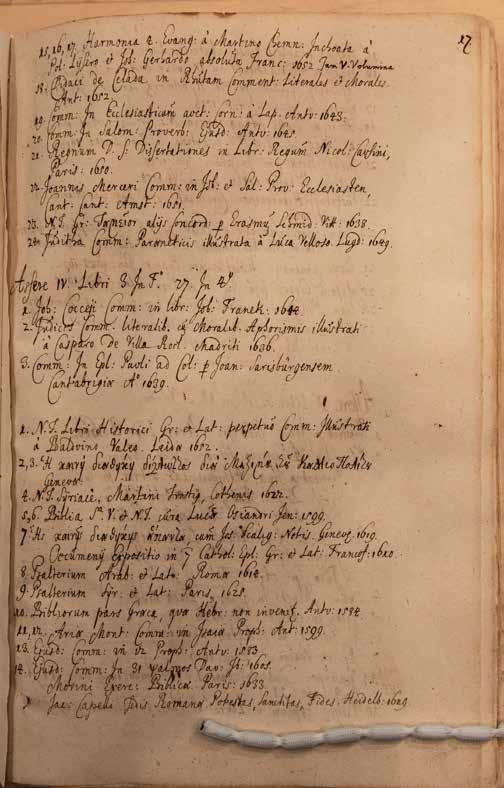 17
15, 16, 17. Harmonia 4. Evang: à Martino Chemn: Inchoata à
Pol: Lysero et Joh: Gerhardo absoluta Franc: 1652 Tom V. Volumina
18. Didaci de Celada in Rhutam Comment: Literales et Morales.
Ant: 1652.
19. Comm: In Ecclesiasticum auct: Corn: à Lap. Antv: 1643.
20. Comm: in Salom: Proverb: Ejusd: Antv: 1645.
21. Regnum D. S: Dissertationes in Libr: Regum Nicol: Causini,
Paris: 1650.
22. Joannis Merceri Comm: in Job: et Sal: Prov: Ecclesiasten,
Cant: Cant: Amst: 1651.
23. N.T. Gr: alijs Concord: p Erasmum Schmid: Vitt: 1638.
24. Juditha Comm: Paraeneticis illustrata à Luca Velloso. Lugd: 1649.
Assere IV. Libri 3 In Fo. 27. In 4o.
1. Joh: Cocceji Comm: in libr: Job: Franek: 1644.
2. Judices Comm. literalib. cum Moralib. Aphorismis illustrati
à Casparo de Villa Roel. Madriti 1636.
3. Comm: In Epl: Pauli ad Col: p Joan: Sarisburgensem
Cantabrigiae Ao 1639.
1. N.T. Libri Historici Gr: et Lat: perpetuo Comm: Illustrati
à Balduino Valeo. Leidae 1652.
2, 3. Ἡ καινὴ διαθήκη
Genevae.
4. N.T. Syriacè, Martini Trostij, Cothenis 1622.
5, 6. Biblia Sa V. et N.T. cura Lucae Osiandri Jen: 1599.
7. Ἡς καινῆς διαθήκης ἅπαντα, cum Jos: Scalig: Notis. Genev: 1619.
Oecumenij expositio in 7 Cathol: Epl: Gr: et Lat: Francof: 1620.
8. Psalterium Arab: et Lat: Romae 1614.
9. Psalterium Syr: et Lat: Paris, 1625.
10. Bibliorum pars Graeca, quae Hebr: non invenit. Antv: 1584.
11, 12. Ariae Mont: Comm: in Isaiae Proph: Ant: 1599.
13. Ejusd: Comm: in 12 Proph: Antv: 1583.
14. Ejusd: Comm: In 31 Psalmos Dav: Ib: 1605.
Morini Exerc: Biblicae Paris: 1633.
Jac: Capelli Romana Potestas, Sanctitas, Fides. Heidelb: 1619